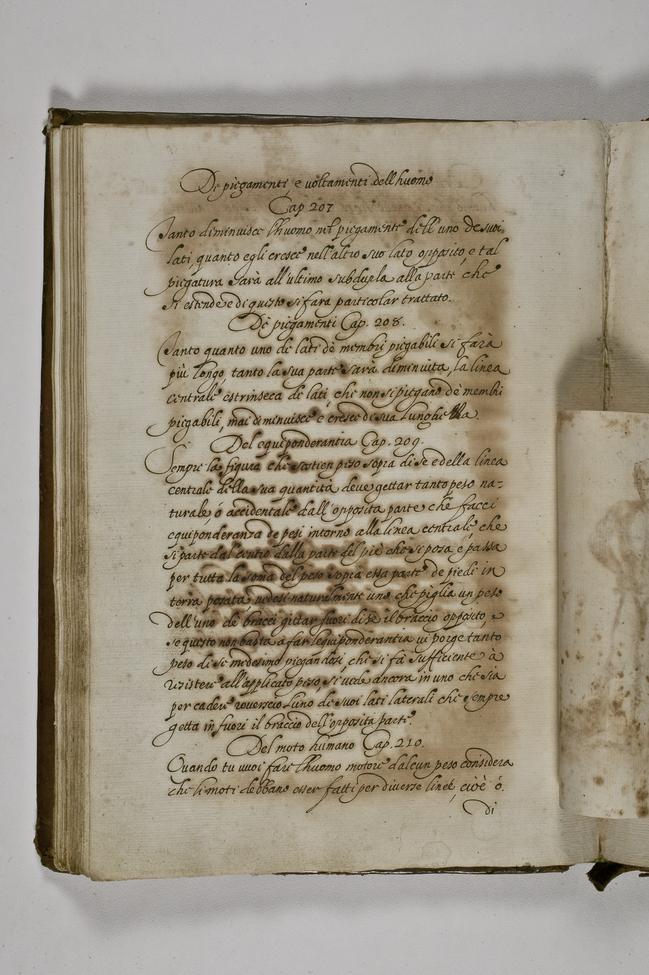 De piegamenti, e voltamenti dell huomo
Cap 207
Tanto diminuisce l'huomo nel piegamento dell' uno de suoi
lati, quanto egli cresce nell'altro suo lato opposito, e tal
piegatura sarà all'ultimo subdupla alla parte che
si estende e di questo si farà particolar trattato.
De piegamenti Cap. 208.
Tanto quanto uno de lati de membri piegabili si farà
più longo, tanto la sua parte sarà diminuita, la linea
centrale estrinseca de lati, che non si piegano de membri
piegabili, mai diminuisce e cresce di sua lunghezza
Del equiponderantia Cap. 209.
Sempre la figura che sostien peso sopra di se e della linea
centrale della sua quantità deve gettar tanto peso na-
turale, ó accidentale dall'opposita parte che facci
equiponderanza de pesi intorno alla linea centrale, che
si parte dal centro dalla parte del piè che si posa e passa
per tutta la soma del peso sopra essa parte de piedi in
terra posata vedesi naturalmente uno che piglia un peso
dell'uno de bracci gittar fuori di se il braccio opposito, e
se questo non basta a far l'equiponderantia vi porge tanto
peso di se medesimo piegandosi, che si fa sufficiente à
resistere all'applicato peso, si vede ancora in uno che sia
per cadere roverscio l'uno de suoi lati laterali che sempre
getta in fuori il braccio dell'opposita parte.
Del moto humano Cap. 210.
Quando tu vuoi fare l'huomo motore d'alcun peso considera
che li moti debbano esser fatti per diverse linee, cioè ó
di